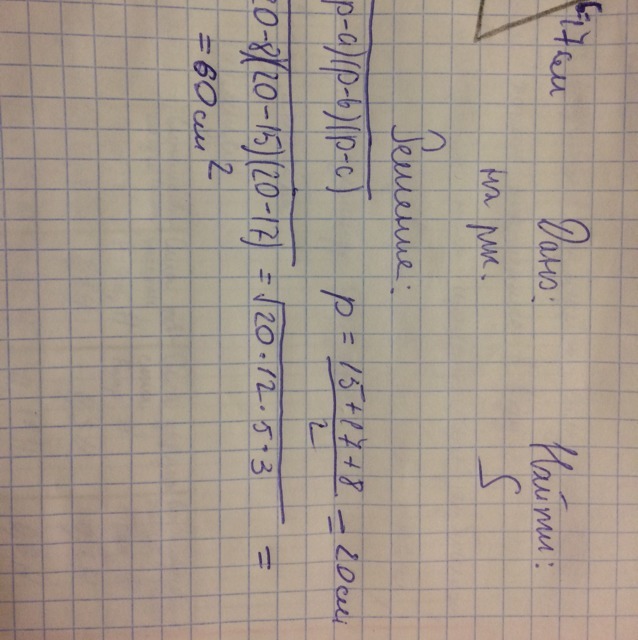 17 см
Дано: Найти:
на рис. S
Решение:
p-a)(p-b)(p-c) p = 15+17+8/2 = 20 см
20-8)(20-15)(20-17) = √20·12·5·3 =
= 60 см²